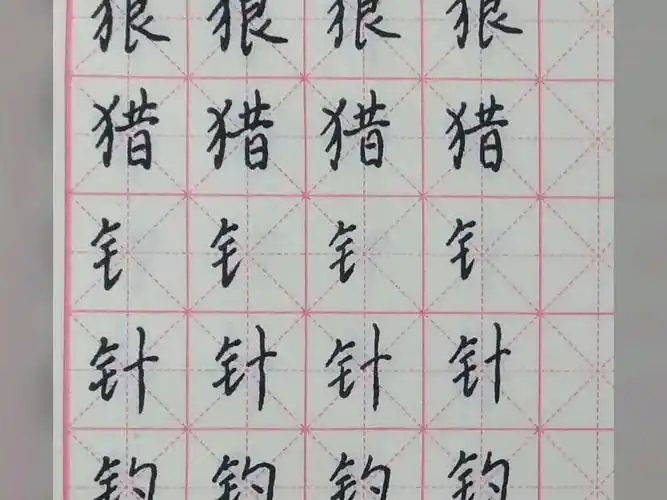 狠狠狠狠
猎猎猎猎
钅钅钅钅
针针针针
钓钓钓钓